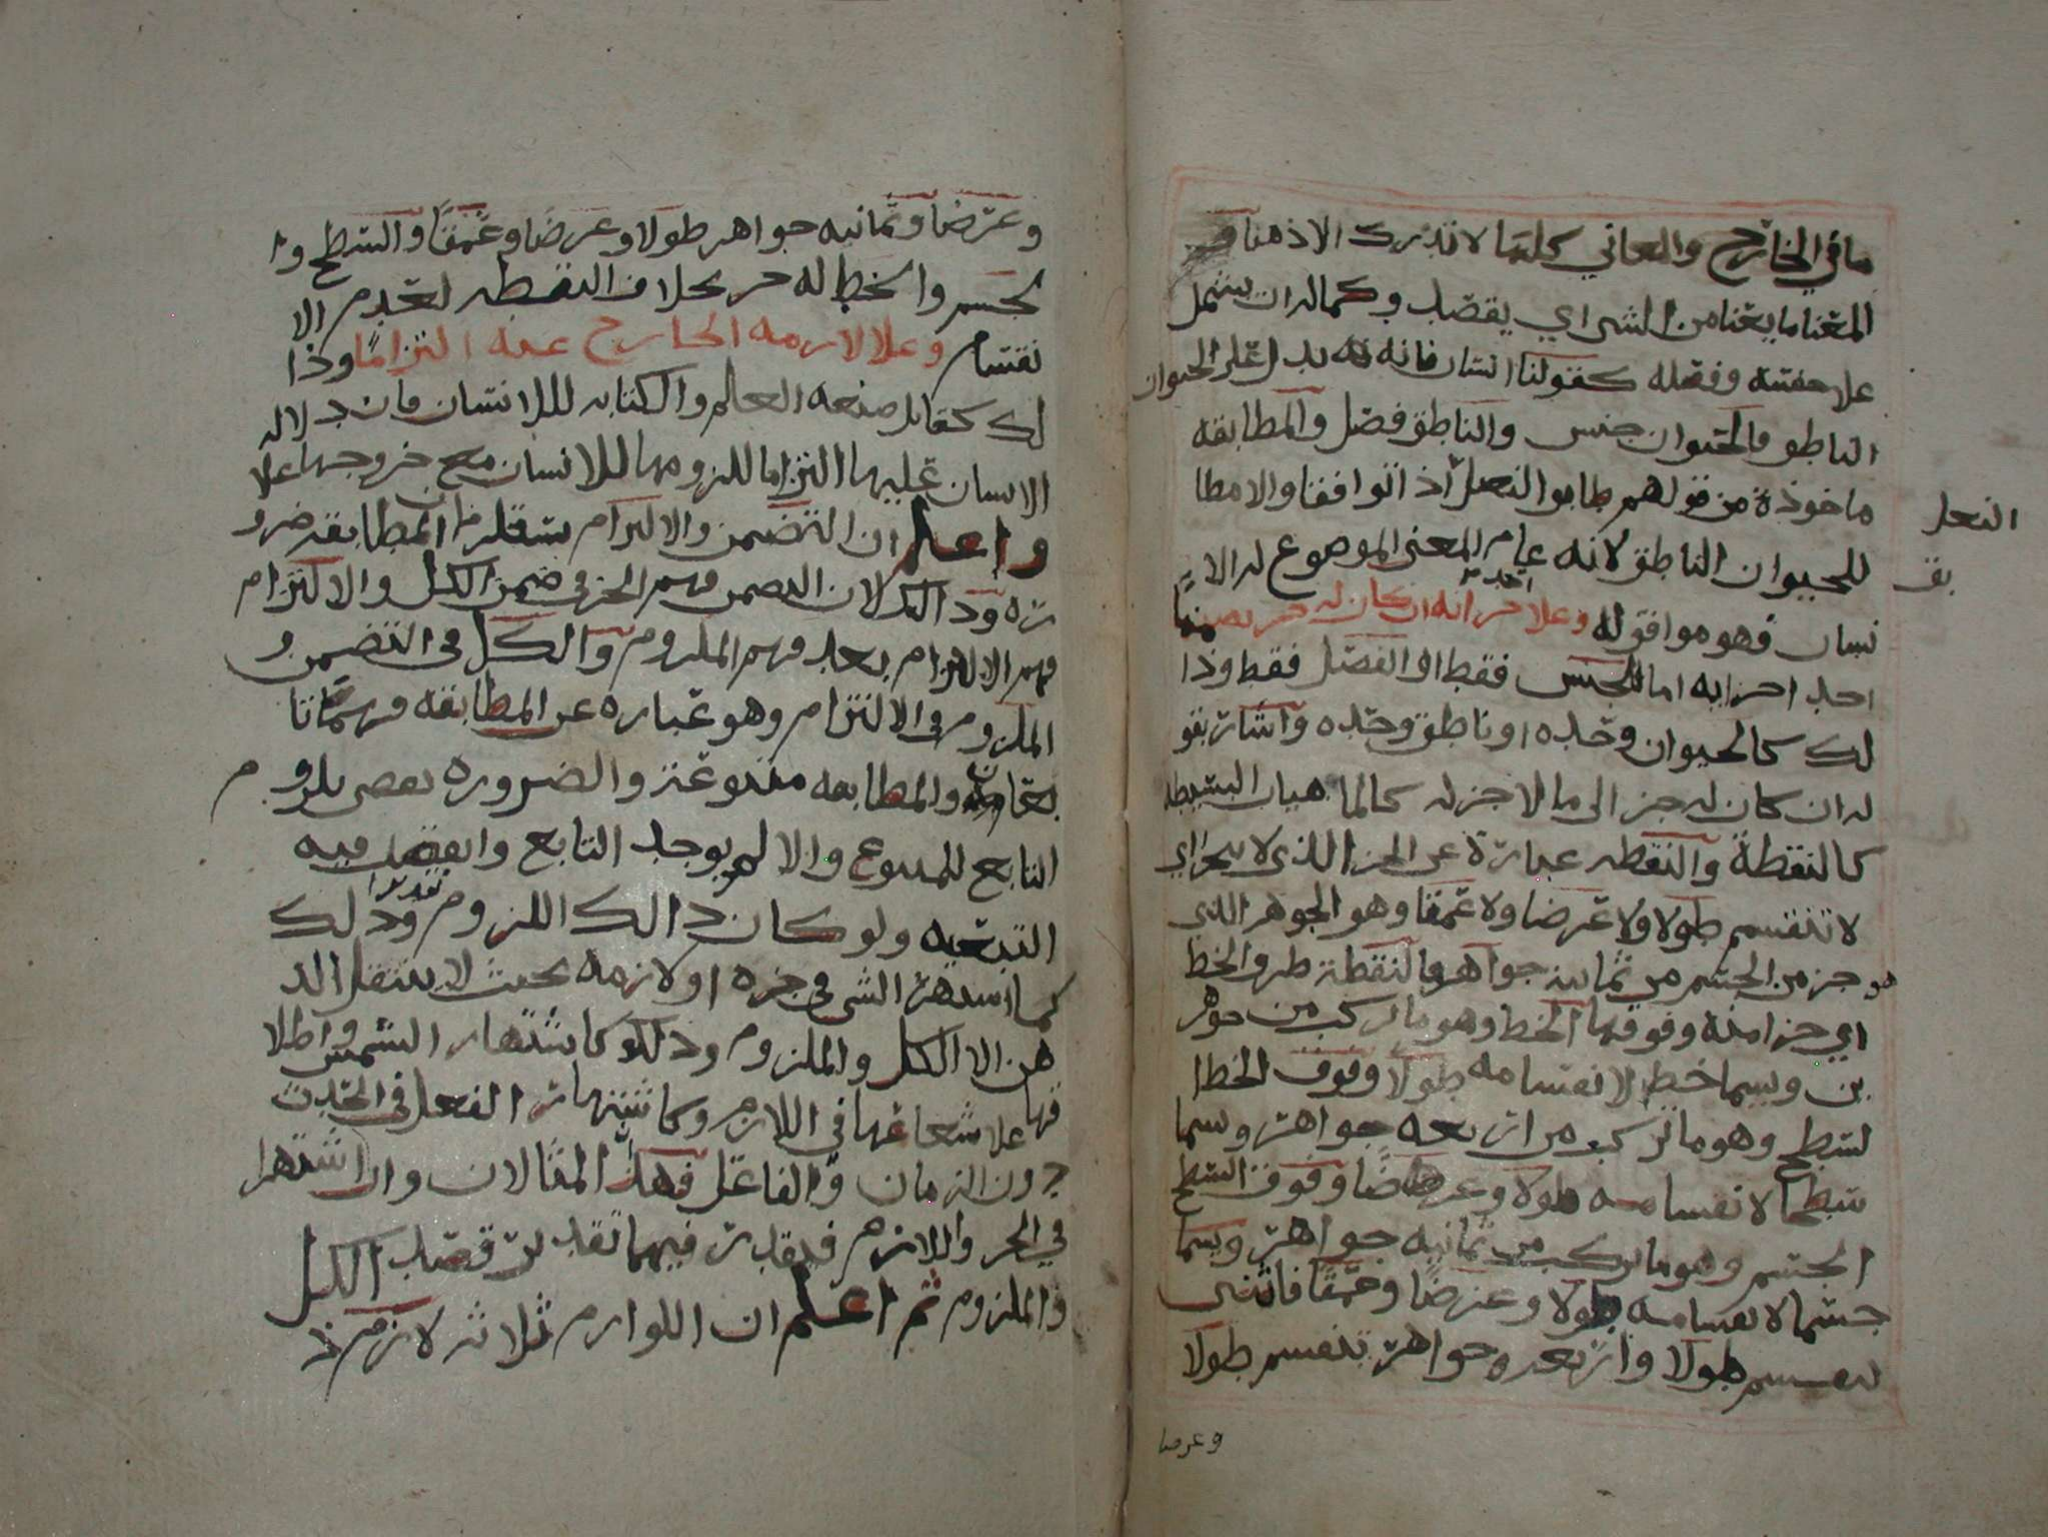 ما في الخارج والمعاني كلها لا تدرك الاذهنا و
المعنا ما يعنا من الشي اي يقصد وكماله ان يشمل
علا جنسه وفصله كقولنا انسان فانه يدل علا الحيوان
الناطق فالحيوان جنس والناطق فصل والمطابقه
ماخوذة من قولهم طابق النعل اذ اتوافقا والا مطا
النعل
بق
للحيوان الناطق لانه عام المعنى الموضوع له الا
نسان فهو موافق له وعلا جزائه ان كان له جز تضمنا
احد اجزايه اما للجنس فقط او الفصل فقط وذا
لك كالحيوان وحده او ناطق وحده واشار بقو
له ان كان له جز الى ما لا جز له كالماهيات البسيطه
كالنقطة والنقطه عبارة عن الجز الذي لا يتجزا اي
لا تنقسم طولا ولا عرضا ولا عمقا وهو الجوهر الذي
هو جز من الجسم من ثمانية جواهر فالنقطة طرف الخط
اي جز امنه وفوقها الخط وهو ما تركب من جوهر
ين ويسما خط لانقسامه طولا وفوق الخط ا
لسطح وهو ما تركب من اربعه جواهر ويسما
سطحا لانقسامه طولا وعرضا وفوق السطح
الجسم وهو ما تركب من ثمانيه جواهر ويسما
جسما لانقسامه طولا وعرضا وعمقا فاثنى
تنقسم طولا واربعه جواهر تنقسم طولا
وعرضا
وعرضا وثمانيه جواهر طولا وعرضا وعمقا والسطح وا
لجسم والخط له جز بخلاف النقطه لعدم الا
نقسام وعلا لازمه الخارج عنه التزاما وذا
لك كقابل صنعه العالم والكتابه للانسان فان دلاله
الانسان عليها التزاما للزومها للانسان مع خروجها علا
واعلم ان التضمن والالتزام يستلزمان المطابقه ضرو
رة وذالك لان التضمن فهم الجز في ضمن الكل والالتزام
فهم الالتزام بعد فهم الملزوم والكل في التضمن و
الملزوم في الالتزام وهو عباره عن المطابقه فهما تا
بعان والمطابقه متبوعة والضروره تقضي بلزوم
التابع للمتبوع والا لم يوجد التابع وانفصل فيه
التبعيه ولو كان ذالك اللزوم تقديرا وذلك
كما اشتهر الشي في جزه او لازمه بحيث لا ينتقل الذ
هن الا الكل والملزوم وذلك كاشتهار الشمس واطلا
قها علا شعاعها في اللازم وكاشتهار الفعل في الحدث
دون الزمان والفاعل فهذا المثالان وان اشتهرا
في الجز واللازم فيقدر فيهما تقدير قصد الكل
والملزوم ثم اعلم ان اللوازم ثلاثه لازم ذ